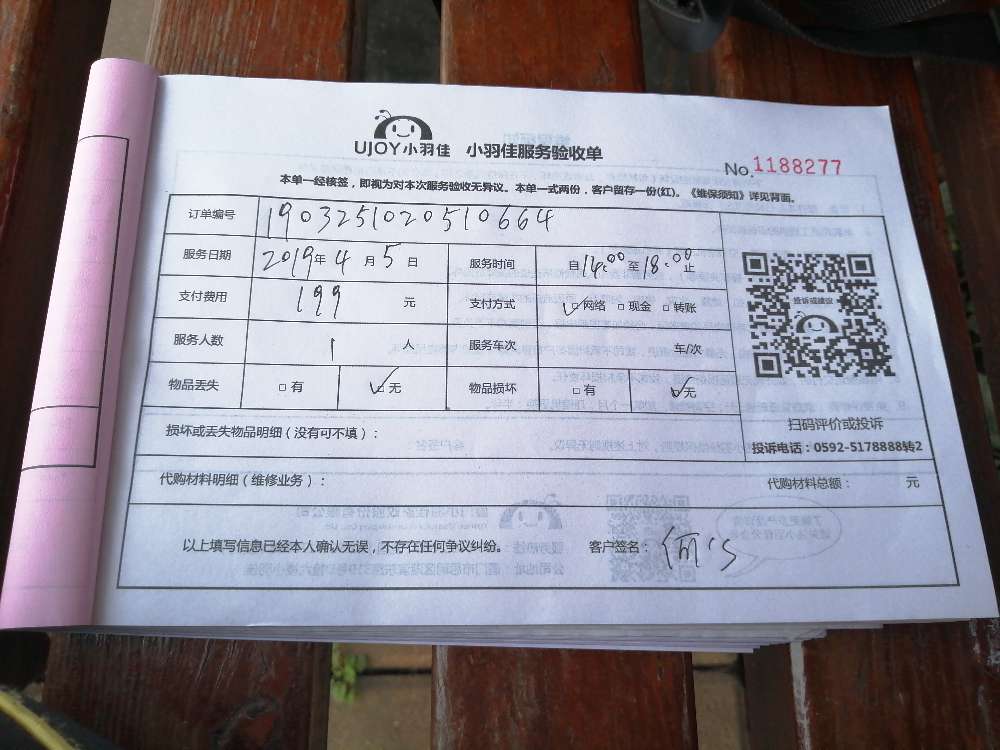 UJOY小羽佳 小羽佳服务验收单
No.1188277
本单一经核签，即视为对本次服务验收无异议。本单一式两份，客户留存一份(红)。《维保须知》详见背面。
订单编号 1903251020510664
服务日期 2019年4月5日 服务时间 自14:00至18:00止
支付费用 199 元 支付方式 ☑网络 □现金 □转账
服务人数 1 人 服务车次 车/次
物品丢失 □有 ☑无 物品损坏 □有 ☑无
投诉或建议
扫码评价或投诉
投诉电话：0592-5178888转2
损坏或丢失物品明细（没有可不填）：
代购材料明细（维修业务）： 代购材料总额： 元
以上填写信息已经本人确认无误，不存在任何争议纠纷。 客户签名：